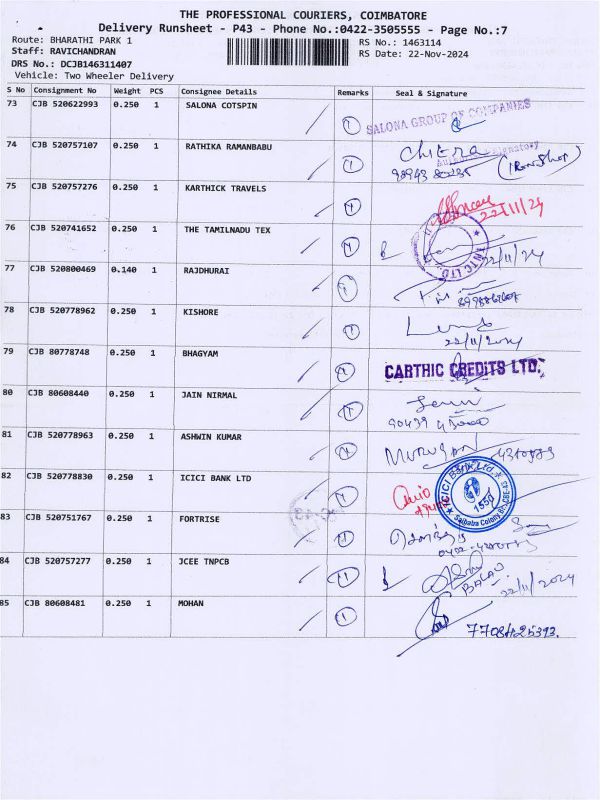 THE PROFESSIONAL COURIERS, COIMBATORE
Delivery Runsheet - P43 - Phone No.:0422-3505555 - Page No.:7
Route: BHARATHI PARK 1
RS No.: 1463114
Staff: RAVICHANDRAN
RS Date: 22-Nov-2024
DRS No.: DCJB146311407
Vehicle: Two Wheeler Delivery
S No Consignment No Weight PCS Consignee Details Remarks Seal & Signature
73 CJB 520622993 0.250 1 SALONA COTSPIN SALONA GROUP OF COMPANIES
74 CJB 520757107 0.250 1 RATHIKA RAMANBABU Chitra
75 CJB 520757276 0.250 1 KARTHICK TRAVELS 22/11/24
76 CJB 520741652 0.250 1 THE TAMILNADU TEX 22/11/24
NTC LTD.
77 CJB 520800469 0.140 1 RAJDHURAI
78 CJB 520778962 0.250 1 KISHORE 22/11/2024
79 CJB 80778748 0.250 1 BHAGYAM CARTHIC CREDITS LTD.
80 CJB 80608440 0.250 1 JAIN NIRMAL
81 CJB 520778963 0.250 1 ASHWIN KUMAR MURUGAN
82 CJB 520778830 0.250 1 ICICI BANK LTD ICICI Bank Ltd.
1550
Saibaba Colony
83 CJB 520751767 0.250 1 FORTRISE
84 CJB 520757277 0.250 1 JCEE TNPCB BALAU
22/11/2024
85 CJB 80608481 0.250 1 MOHAN 7708425393.